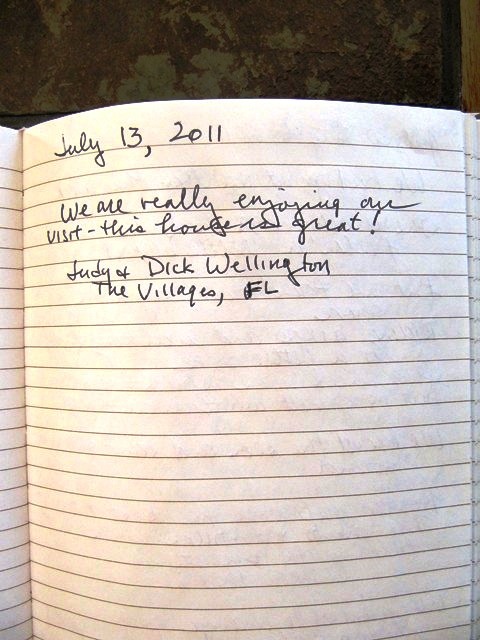 July 13, 2011
We are really enjoying our
visit - this house is great!
Judy & Dick Wellington
The Villages, FL